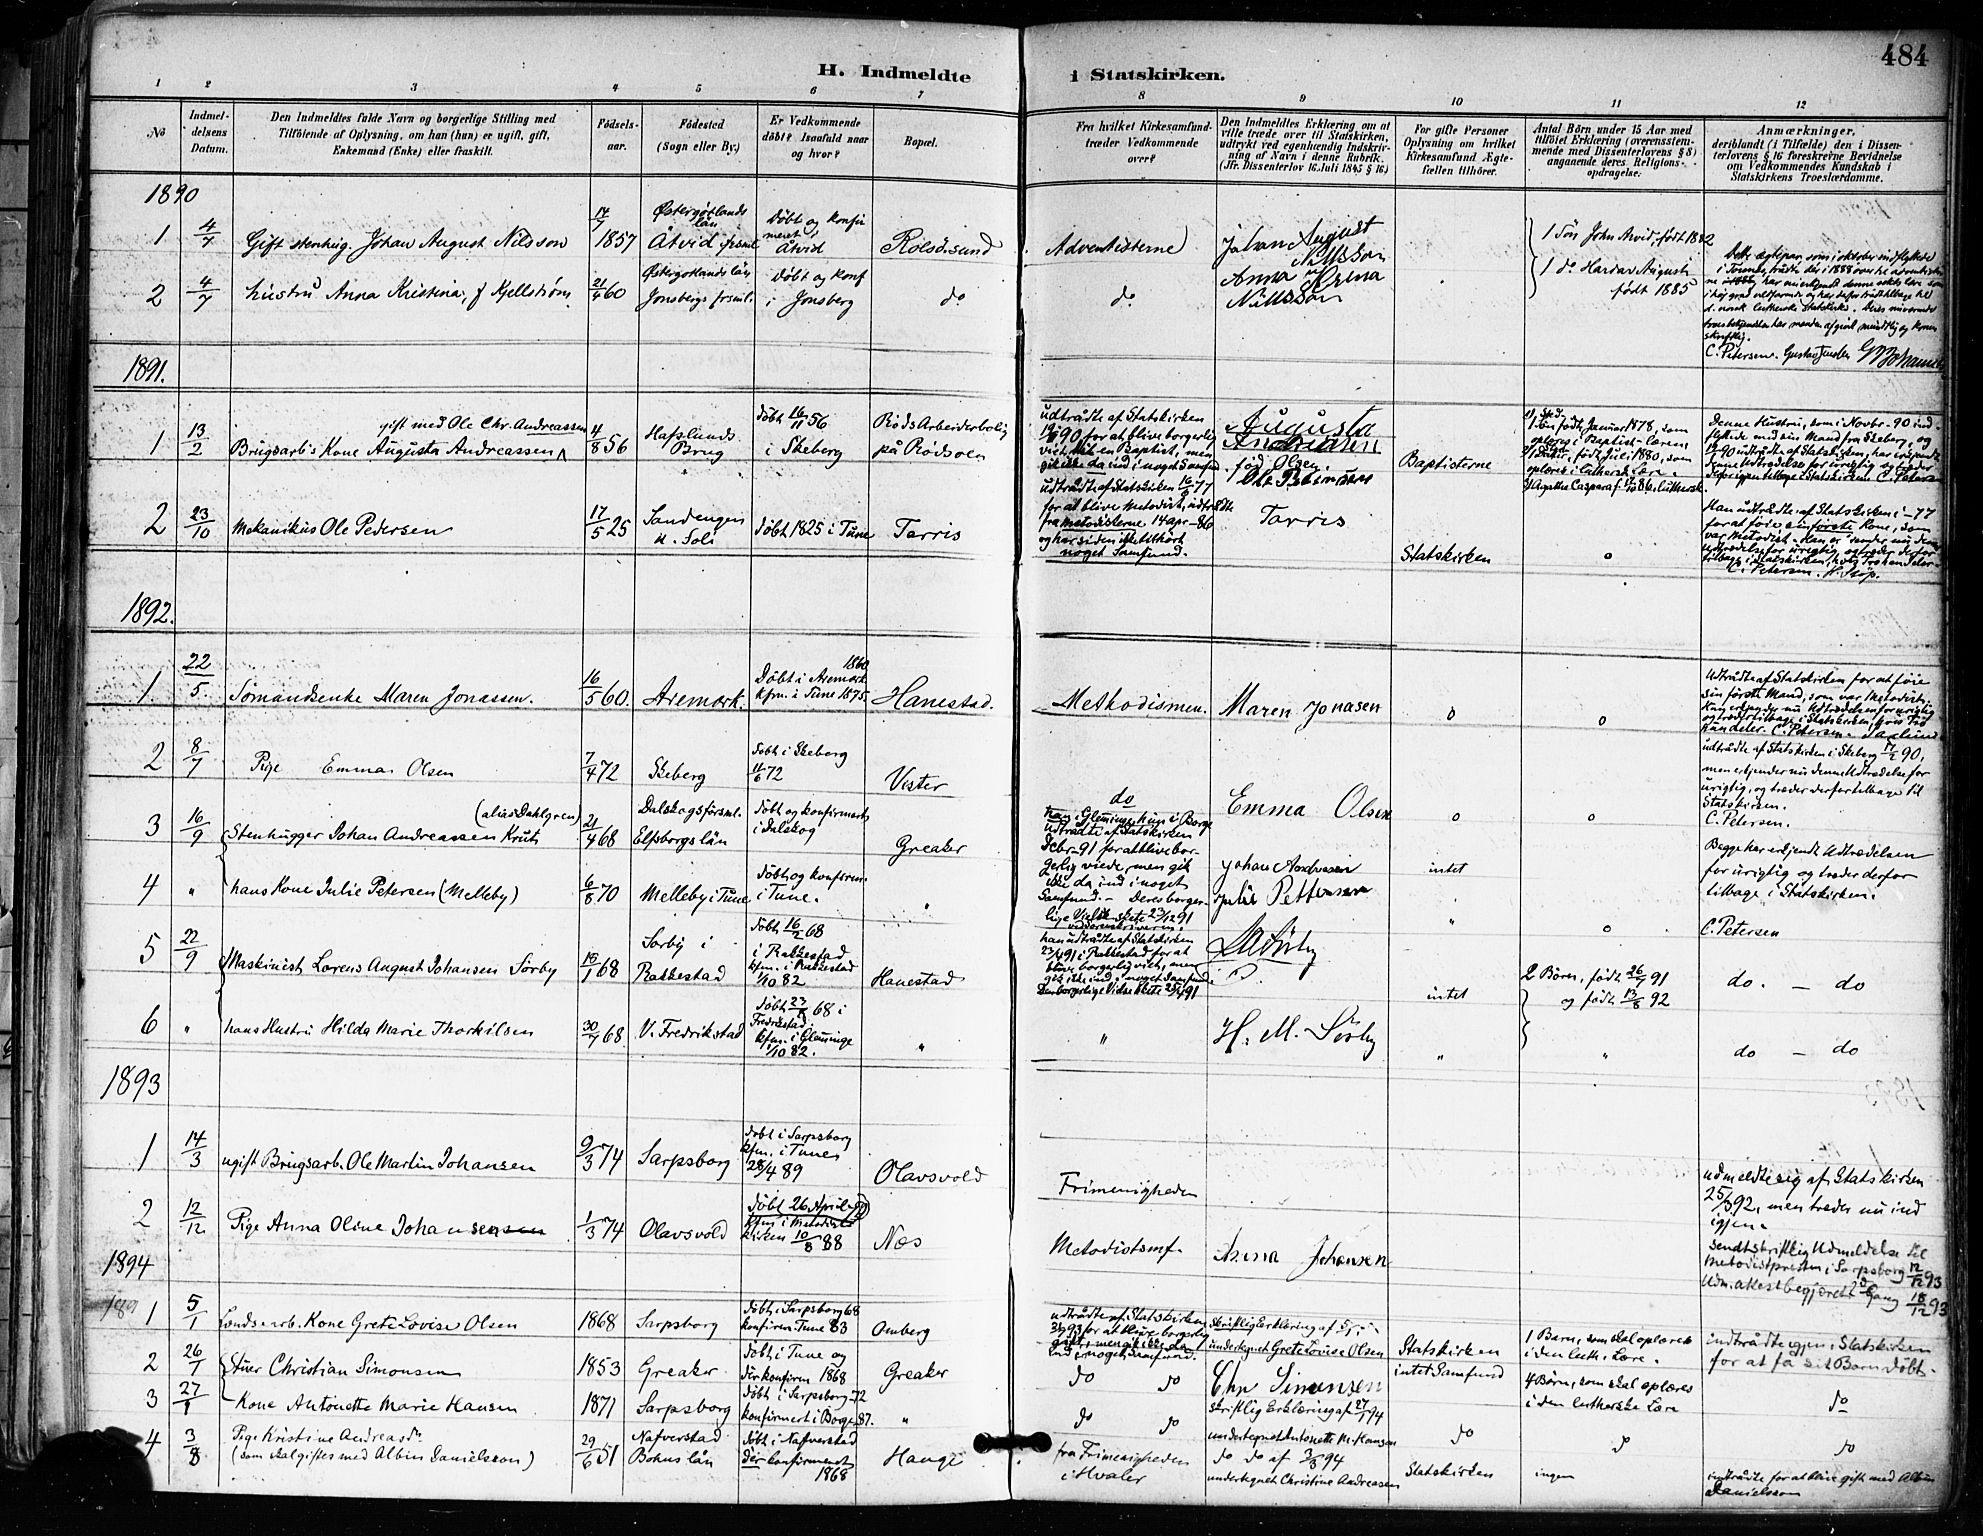 484
H. Indmeldte i Statskirken.
1 2 3 4 5 6 7 8 9 10 11 12
No
Indmel-
delsens
Datum.
Den Indmeldtes fulde Navn og borgerlige Stilling med
Tilföiende af Oplysning, om han (hun) er ugift, gift,
Enkemand (Enke) eller fraskilt.
Födsels-
aar.
Födested
(Sogn eller By.)
Er Vedkommende
döbt? Isaafald naar
og hvor?
Bopæl.
Fra hvilket Kirkesamfund
træder Vedkommende
over?
Den Indmeldtes Erklæring om at
ville træde over til Statskirken,
udtrykt ved egenhændig Indskriv-
ning af Navn i denne Rubrik.
(Jfr. Dissenterlov 16 Juli 1845 § 16.)
For gifte Personer
Oplysning om hvilket
Kirkesamfund Ægte-
fællen tilhörer.
Antal Börn under 15 Aar med
tilföiet Erklæring (overensstem-
mende med Dissenterlovens § 8)
angaaende deres Religions-
opdragelse.
Anmærkninger,
deriblandt (i Tilfælde) den i Dissen-
terlovens § 16 foreskrevne Bevidnelse
om Vedkommendes Kundskab i
Statskirkens Troeslærdomme.
1890
1 4/7 Gift stenhug. Johan August Nilsson
14/7 1857
Østergötlands
län
Åtvid
Døbt og konfir
meret i
Åtvid
Rolsösund
Adventisterne
Johan August
Nilsson
1 Sön John Arvid, født 1882
2 4/7 hustru Anna Kristina f Kjellström
21/4 60
Østergotlands län
Jonsbergs
Døbt og konf
i Jonsberg
do
do
Anna
Nilsson
1 do August
født 1885
Dette ægtepar, som i oktober indflyttede
d. norsk lutherske Statskirke. Deres nuværende
skriftlig.
C. Petersen. Gustav Jensen
1891.
1 13/2 gift med Ole Chr. Andreassen
Brugsarb's Kone Augusta Andreassen
4/8 56
Hafslunds
Brug
Døbt 16/11 56
i Skeberg
Röds Arbeiderbolig
på Rödsoen
udtrådte af Statskirken
90 for at blive borgerlig
viet til en Baptist, men
gik ikke da ind i noget Samfund
Augusta
født Olsen.
Baptisterne
født Januar 1878, som
opdrag i Baptist-læren
født Juli 1880, som
oplæres i luthersk Lære.
Denne Hustru, som i Novbr-90 ind-
flyttede med sin Mand fra Skeberg, og
90 udtrådte af Statskirken, har erkjendt
denne Udtrædelse for urigtig og træder
derfor igjen tilbage i Statskirken C. Petersen
2 23/10 Mekanikus Ole Pedersen
17/5 25
Sandengen
u. Soli
Døbt 1825 i Tune
Tarris
udtrådte af Statskirken 16/6 77
for at blive Metodist, udtrådte
fra Metodisterne 14 apr-86
og har siden ikke tilhört
noget Samfund.
Tarris
Statskirken
o
Han udtrådte af Statskirken i -77
for at föie sin förste Kone, som
var Metodist. Han erkjender nu denne
Udtrædelse for urigtig, og træder derfor
tilbage i Statskirken,
C. Petersen.
1892.
1. 22/5. Sömandsenke Maren Jonassen.
16/5 60.
Aremark.
1860
Døbt i Aremark
kfm. i Tune 1875.
Hanestad.
Methodismen.
Maren Jonasen
o
o
Udtrådte af Statskirken for at föie
sin förste Mand, som var Metodist.
Hun erkjender nu Udtrædelsen for urigtig
og træder tilbage i Statskirken,
C. Petersen.
2 8/7 Pige Emma Olsen
7/4 72
Skeberg
Døbt i Skeberg
11/6 72
Vister
do
Emma Olsen
o
o
udtrådte af Statskirken i Skeberg 17/2 90,
men erkjender nu denne Udtrædelse for
urigtig, og træder derfor tilbage til
Statskirken.
C. Petersen.
3 16/9 (alias Dahlgren)
Stenhugger Johan Andreassen Kruts
21/4 68
Dalskogs församl.
Elfsborgs län
Døbt og konfirmeret
i Dalskog
Greaker
han i Glemminge, hun i Borge
udtrådte af Statskirken
Debr-91 for at blive bor-
gerlig viede, men gik
ikke da ind i noget
Samfund. - Deres borger-
lige Vielse skete 23/12 91
Johan Andreasen
intet
Begge har erkjendt Udtrædelsen
for urigtig og træder derfor
tilbage i Statskirken.
C. Petersen
4 " hans Kone Julie Petersen (Melleby)
6/8 70
Melleby i Tune
Døbt og konfirm.
i Tune.
"
Julie Pettersen
"
o
5 22/9 Maskinist Lorens August Johansen Sörby
15/1 68
Sörby i
Rakkestad
Døbt 16/2 68
i Rakkestad
kfm. i Rakkestad
1/10 82
Hanestad
han udtrådte af Statskirken
91 i Rakkestad for at
blive borgerlig viet, men
gik ikke ind i noget Samfund.
Den borgerlige Vielse skete 91
intet
2 Börn, födt 26/7 91
og födt 13/8 92
do. - do
6 " hans Hustru Hilda Marie Thorkilsen
30/7 68
V. Fredrikstad
Døbt 23/ 68 i
Fredrikstad
kfm. i Glemminge
1/10 82.
"
"
H. M. Sörby
"
"
do - do
1893
1 14/3 ugift Brugsarb. Ole Martin Johansen
9/3 74
Sarpsborg
Døbt i Sarpsborg
kfm. i Tune
28/4 89
Olavsvold
Frimenigheden
udmeldte sig af Statskirken
25/3 92, men træder nu ind
igjen.
2 12/12 Pige Anna Oline Johansen
1/3 74
Olavsvold
Døbt 26 April 
kfm. i Metodist
kirken 10/8 88
Næs
Metodistsmf.
Anna Johansen
sendt skriftlig Udmeldelse til
Metodistpresten i Sarpsborg 12/12 93
Udm. attest begjæret 2d Gang 18/12 93
1894
1 5/1 Landsarb. Kone Grete Lovise Olsen
1868
Sarpsborg
Døbt i Sarpsborg 68
konfirm. Tune 83
Omberg
udtrådte af Statskirken
93 for at blive borgerlig
gift, men gik ikke da
ind i noget Samfund.
skriftlig Erklæring af 5/1
undertegnet Grete Louise Olsen
Statskirken
1 Barn, som skal oplæres
i den luth. Lære.
indtrådte igjen i Statskirken
for at få sit Barn Døbt.
2 26/1 Stuer Christian Simonsen
1853
Greaker
Døbt i Tune og
der konfirm 1868
Greaker
do do
Chr Simonsen
intet Samfund
4 Börn, som skal oplæres
i den lutherske Lære
do
3 27/1 Kone Antonette Marie Hansen
1871
Sarpsborg
Døbt i Sarpsborg -72
konfirmert i Borge 87.
"
do do
skriftlig Erklæring af 27/1 94
undertegnet Antonette M. Hansen
do
do
do
4 3/8 Pige Kristine Andreasdr
(som skal giftes med Albin Danielsson)
29/6 51
Nafverstad
Bohus län
Døbt i Nafverstad
der konfirmeret
1868
Hauge
fra Frimenigheden
i Hvaler
do do af 3/8 94
undertegnet Christine Andreasen
Statskirken
ingen
indtrådte for at blive gift med Albin
Danielsson